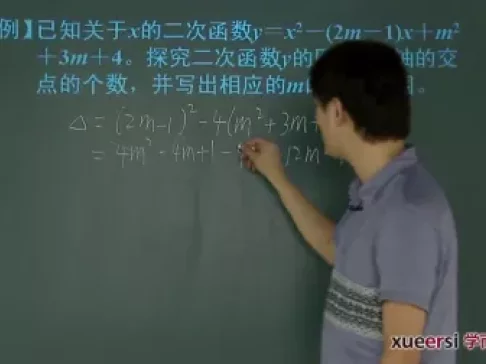 例】已知关于x的二次函数y=x²-(2m-1)x+m²
+3m+4。探究二次函数y的 的交
点的个数，并写出相应的m 。
Δ= (2m-1)²-4(m²+3m+
= 4m²-4m+1- 12m
xueersi 学而